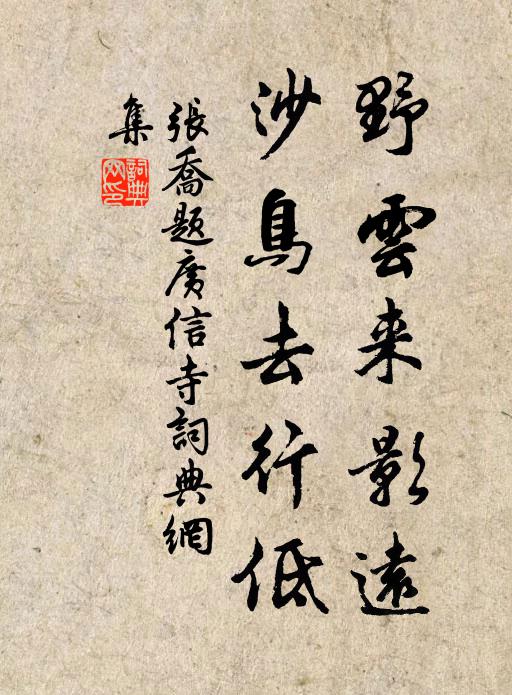 野雲来影遠
沙鳥去行低
張喬題广信寺詞典網
集
詞典網印